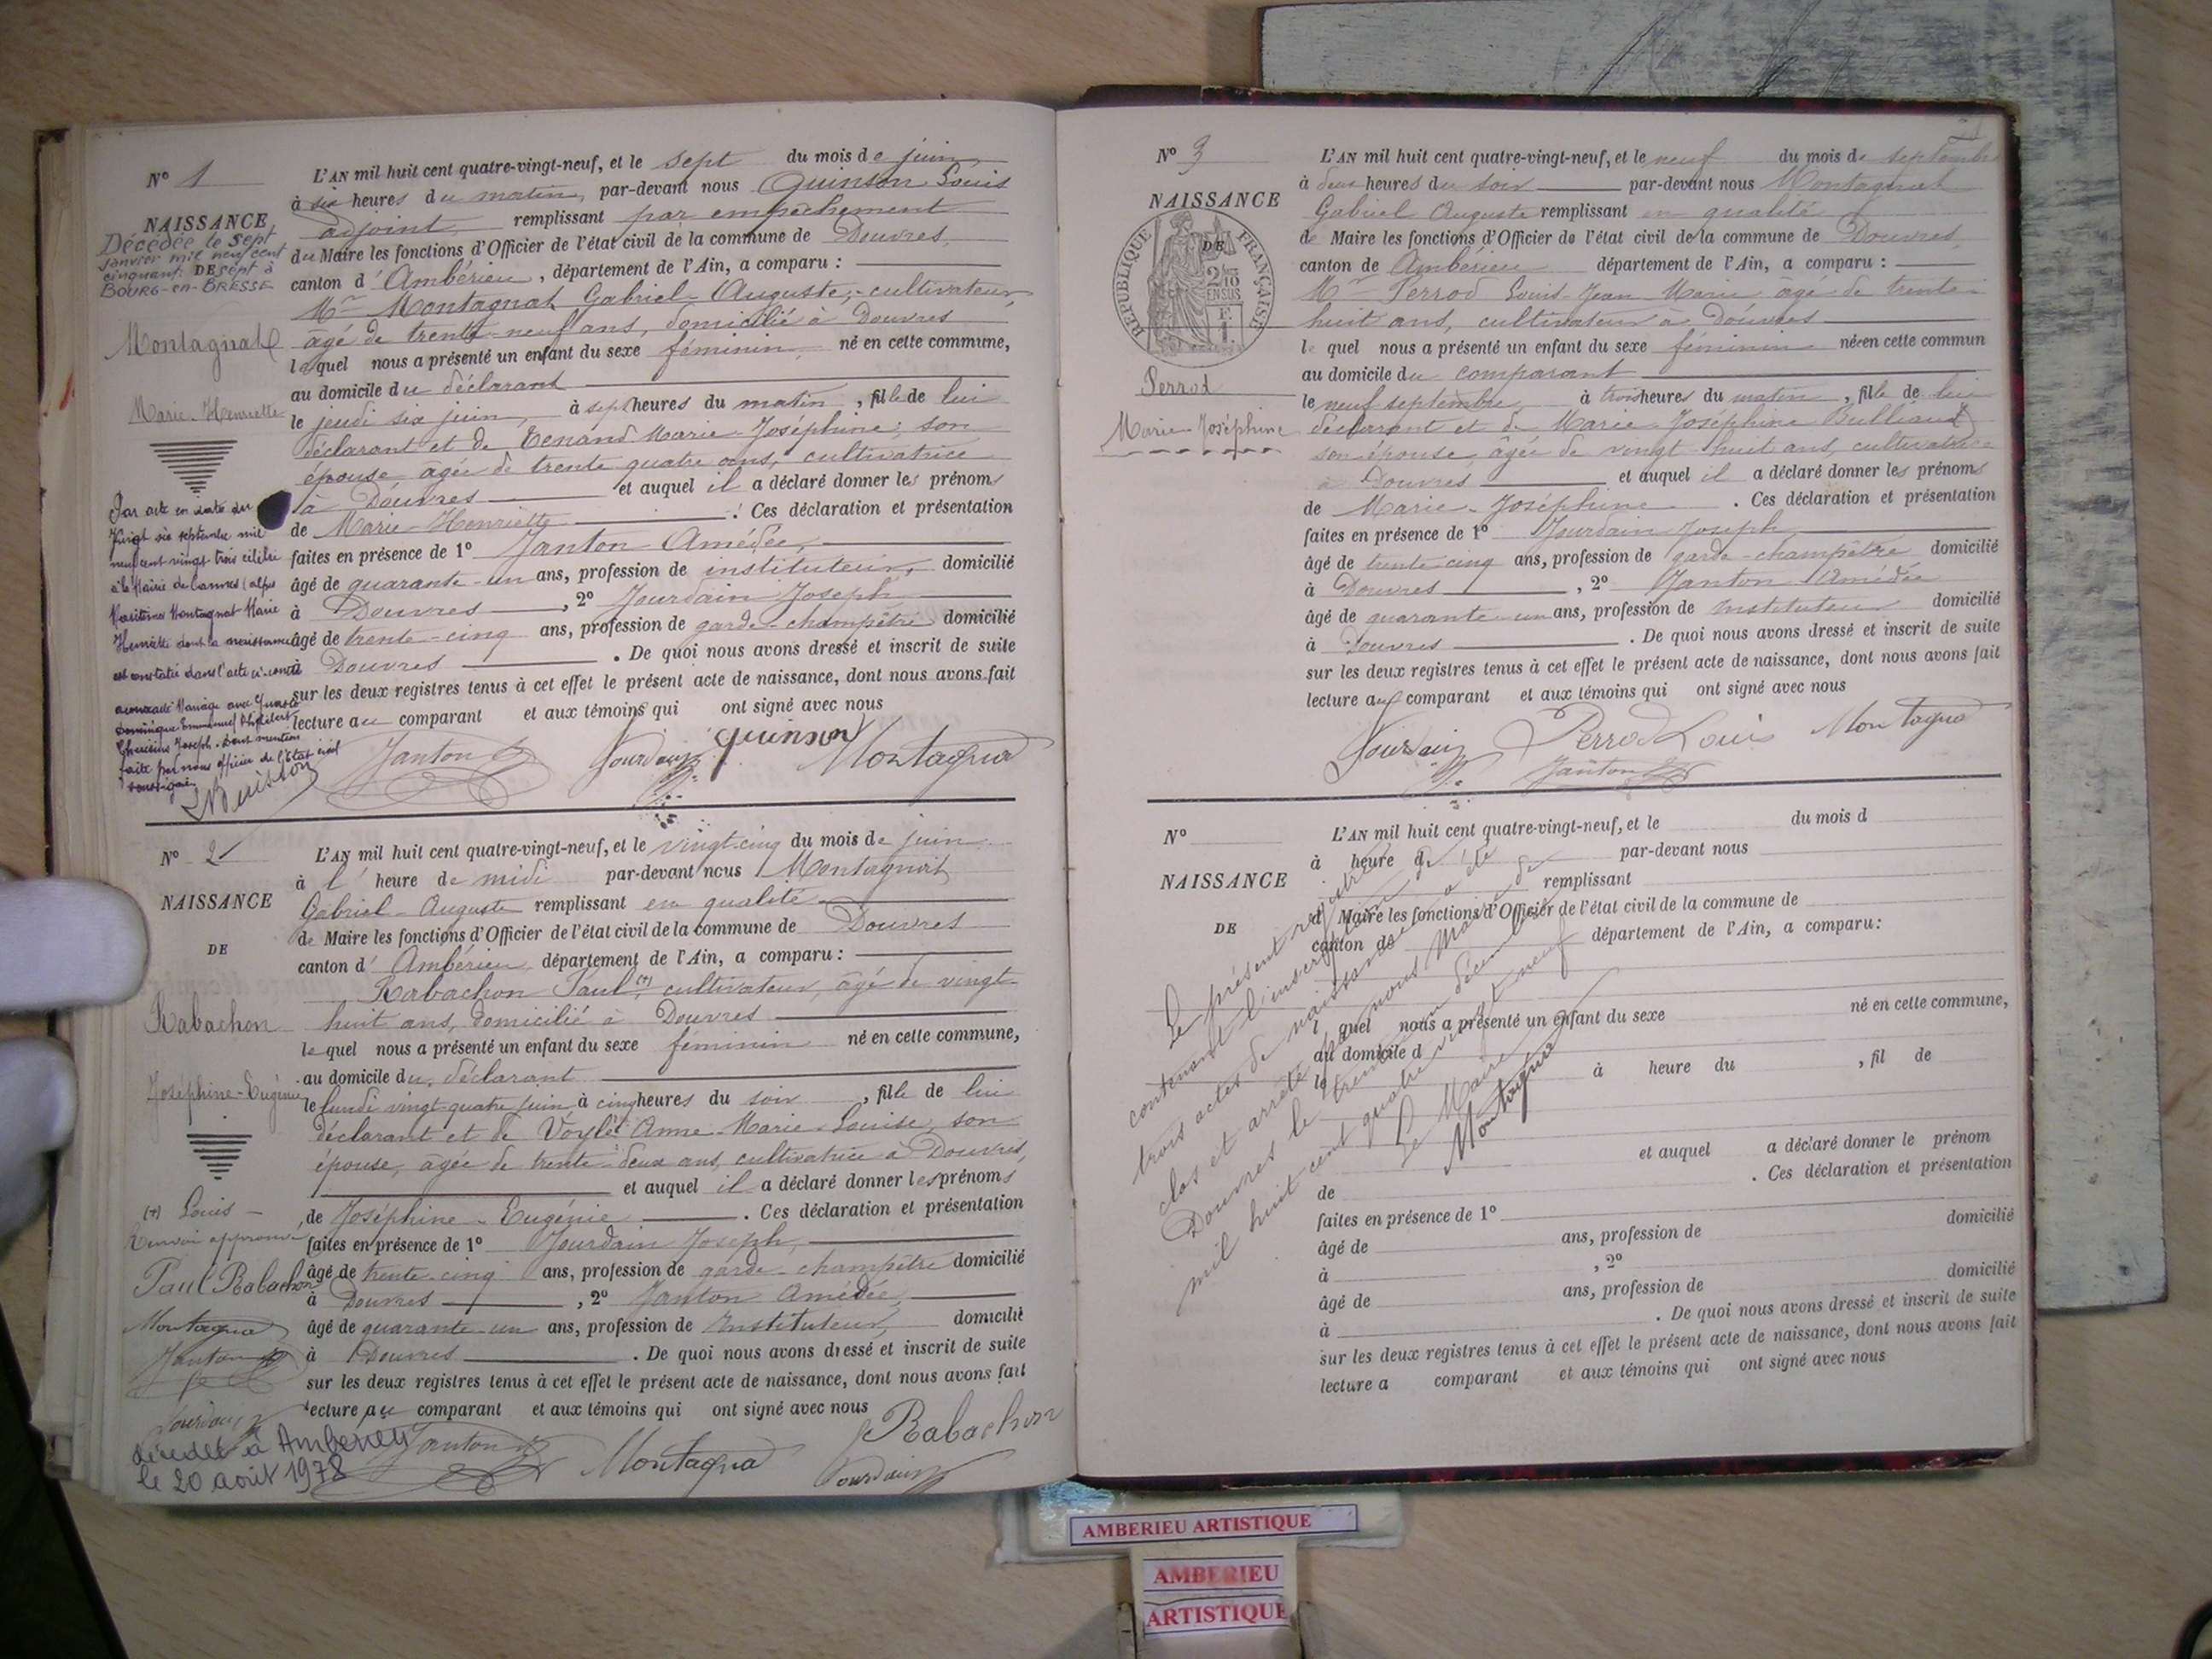 N° 1
NAISSANCE
DE
Décédée le sept
janvier mil neuf cent
cinquante sept à
BOURG-en-BRESSE
Montagnat
Marie-Henriette
Par acte en date du
vingt six septembre mil
neuf cent vingt trois célébré
à la Mairie de Cannes (Alpes
Maritimes Montagnat Marie
Henriette dont la naissance
est constatée dans l'acte ci-contre
a contracté Mariage avec
Dominique Emmanuel
Joseph. Dont mention
faite par nous officier de l'État civil
soussigné
L'AN mil huit cent quatre-vingt-neuf, et le sept du mois de juin
à six heures du matin, par-devant nous Quinson Louis
adjoint remplissant par empêchement
du Maire les fonctions d'Officier de l'état civil de la commune de Douvres,
canton d'Ambérieu, département de l'Ain, a comparu :
Mr Montagnat Gabriel-Auguste, cultivateur,
âgé de trente-neuf ans, domicilié à Douvres
lequel nous a présenté un enfant du sexe féminin, né en cette commune,
au domicile du déclarant
le jeudi six juin, à sept heures du matin, fille de lui
déclarant et de Tenand Marie-Joséphine, son
épouse âgée de trente quatre ans, cultivatrice
à Douvres et auquel il a déclaré donner les prénoms
de Marie-Henriette. Ces déclaration et présentation
faites en présence de 1° Janton Amédée,
âgé de quarante-un ans, profession de instituteur, domicilié
à Douvres, 2° Jourdain Joseph
âgé de trente-cinq ans, profession de garde-champêtre domicilié
à Douvres. De quoi nous avons dressé et inscrit de suite
sur les deux registres tenus à cet effet le présent acte de naissance, dont nous avons fait
lecture au comparant et aux témoins qui ont signé avec nous
Janton Jourdain Quinson Montagnat
N° 2
NAISSANCE
DE
Rabachon
Joséphine-Eugénie
(+) Louis -
Renvoi approuvé
Paul Rabachon
Montagnat
Janton
Jourdain
décédée à Amberieu
le 20 août 1978
L'AN mil huit cent quatre-vingt-neuf, et le vingt-cinq du mois de juin
à l'heure de midi par-devant nous Montagnat
Gabriel-Auguste remplissant en qualité
de Maire les fonctions d'Officier de l'état civil de la commune de Douvres
canton d'Ambérieu, département de l'Ain, a comparu :
Rabachon Paul (+), cultivateur, âgé de vingt-
huit ans, domicilié à Douvres
lequel nous a présenté un enfant du sexe féminin né en cette commune,
au domicile du déclarant
le lundi vingt-quatre juin à cinq heures du soir, fille de lui
déclarant et de Anne-Marie-Louise, son
épouse, âgée de trente-deux ans, cultivatrice à Douvres,
et auquel il a déclaré donner les prénoms
de Joséphine-Eugénie. Ces déclaration et présentation
faites en présence de 1° Jourdain Joseph,
âgé de trente-cinq ans, profession de garde-champêtre domicilié
à Douvres, 2° Janton Amédée,
âgé de quarante-un ans, profession de Instituteur, domicilié
à Douvres. De quoi nous avons dressé et inscrit de suite
sur les deux registres tenus à cet effet le présent acte de naissance, dont nous avons fait
lecture au comparant et aux témoins qui ont signé avec nous
Rabachon
Janton Montagnat Jourdain
N° 3
NAISSANCE
DE
RÉPUBLIQUE FRANÇAISE
2/10
EN SUS
Perrod
Marie-Joséphine
L'AN mil huit cent quatre-vingt-neuf, et le neuf du mois de septembre
à deux heures du soir par-devant nous Montagnat
Gabriel Auguste remplissant en qualité
de Maire les fonctions d'Officier de l'état civil de la commune de Douvres,
canton de Ambérieu département de l'Ain, a comparu :
Mr Perrod Louis-Jean-Marie, âgé de trente-
huit ans, cultivateur à Douvres
lequel nous a présenté un enfant du sexe féminin née en cette commun
au domicile du comparant
le neuf septembre à trois heures du matin, fille de lui
déclarant et de Marie-Joséphine Bulliand
son épouse, âgée de vingt-huit ans, cultivatrice
à Douvres et auquel il a déclaré donner les prénoms
de Marie-Joséphine. Ces déclaration et présentation
faites en présence de 1° Jourdain Joseph
âgé de trente cinq ans, profession de garde-champêtre domicilié
à Douvres, 2° Janton Amédée
âgé de quarante-un ans, profession de Instituteur domicilié
à Douvres. De quoi nous avons dressé et inscrit de suite
sur les deux registres tenus à cet effet le présent acte de naissance, dont nous avons fait
lecture au comparant et aux témoins qui ont signé avec nous
Jourdain Perrod Louis Montagnat
Janton
N°
NAISSANCE
DE
L'AN mil huit cent quatre-vingt-neuf, et le du mois d
à heure d par-devant nous
remplissant
d Maire les fonctions d'Officier de l'état civil de la commune de
canton de département de l'Ain, a comparu :
l quel nous a présenté un enfant du sexe né en cette commune,
au domicile d
le à heure du , fil de
et auquel a déclaré donner le prénom
de . Ces déclaration et présentation
faites en présence de 1°
âgé de ans, profession de domicilié
à , 2°
âgé de ans, profession de domicilié
à . De quoi nous avons dressé et inscrit de suite
sur les deux registres tenus à cet effet le présent acte de naissance, dont nous avons fait
lecture a comparant et aux témoins qui ont signé avec nous
Le présent registre
contenant l'inscription de
trois actes de naissance a été
clos et arrêté par nous Maire de
Douvres le trente un décembre
mil huit cent quatre vingt neuf
Le Maire
Montagnat
AMBERIEU ARTISTIQUE
AMBERIEU
ARTISTIQUE